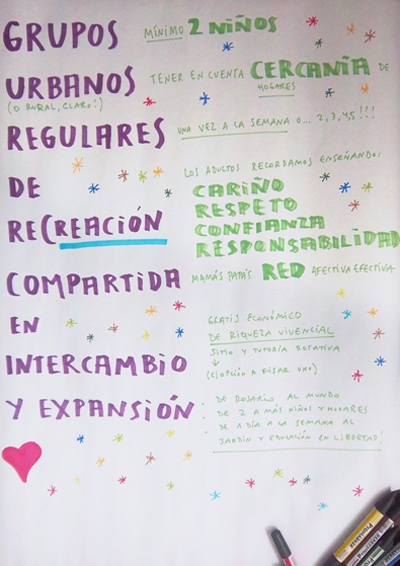 GRUPOS MÍNIMO 2 NIÑOS
URBANOS TENER EN CUENTA CERCANÍA DE
(O RURAL, CLARO!) HOGARES
REGULARES UNA VEZ A LA SEMANA O... 2, 3, 4, 5!!!
DE LOS ADULTOS RECORDAMOS ENSEÑANDO:
CARIÑO
RESPETO
RECREACIÓN CONFIANZA
RESPONSABILIDAD
COMPARTIDA MAMÁS PAPÁS RED AFECTIVA EFECTIVA
EN GRATIS ECONÓMICO
DE RIQUEZA VIVENCIAL
INTERCAMBIO SITIO Y TUTORÍA ROTATIVA
(U OPCIÓN A FIJAR UNO)
Y EXPANSIÓN: DE ROSARIO AL MUNDO
DE 2 A MÁS NIÑOS Y HOGARES
DE 1 DÍA A LA SEMANA AL
JARDÍN Y EDUCACIÓN EN LIBERTAD!